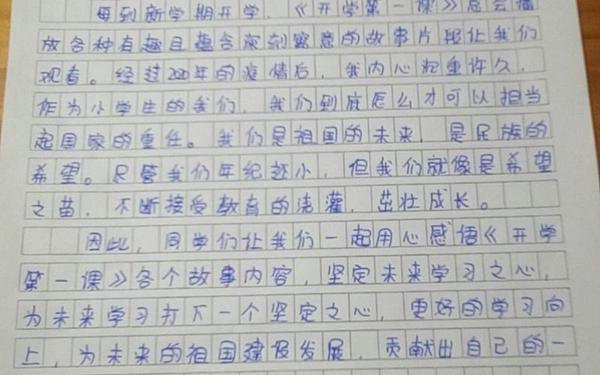 每到新学期开学,《开学第一课》总会播
放各种有趣且蕴含深刻寓意的故事片段让我们
观看。经过2020年的疫情后,我内心沉重许久,
作为小学生的我们,我们到底怎么才可以担当
起国家的重任。我们是祖国的未来,是民族的
希望。尽管我们年纪还小,但我们就像是希望
之苗,不断接受教育的浇灌,茁壮成长。
因此,同学们让我们一起用心感悟《开学
第一课》各个故事内容,坚定未来学习之心,
为未来学习打下一个坚定之心,更好的学习向
上,为未来的祖国建设发展,贡献出自己的一